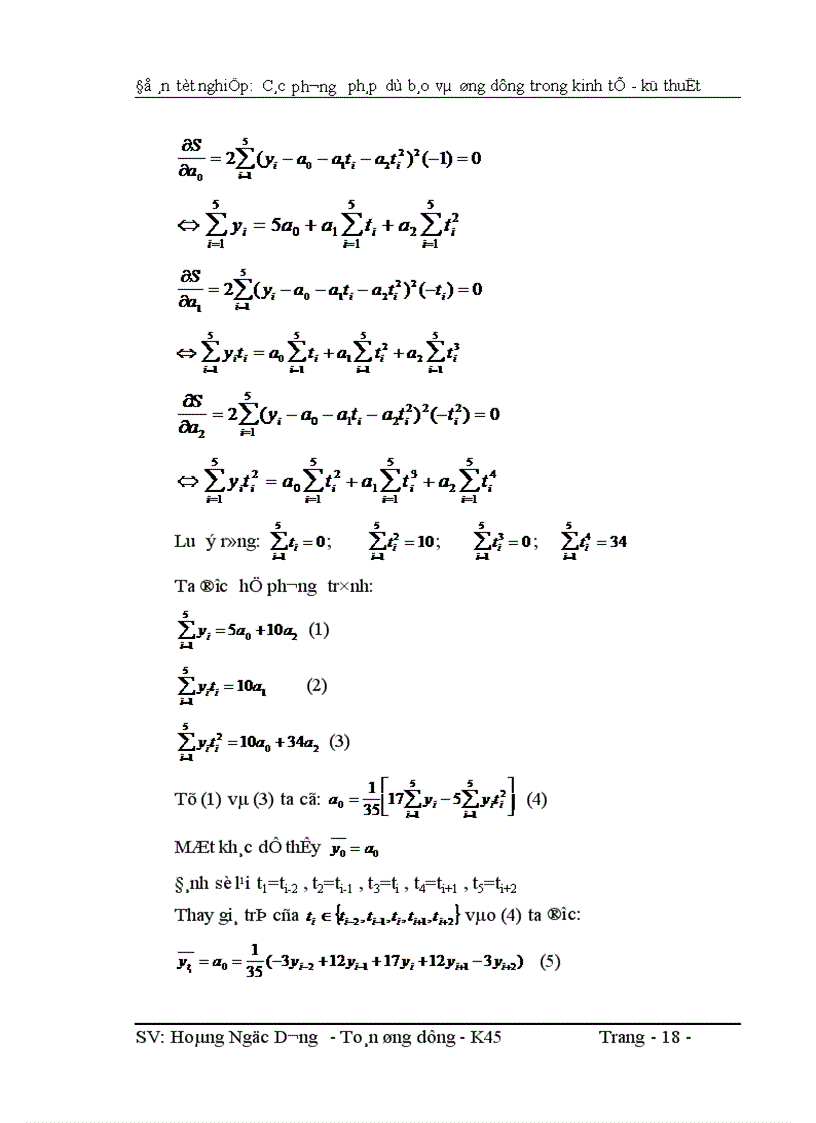 §å ¸n tèt nghiÖp: C¸c ph­¬ng ph¸p dù b¸o vµ øng dông trong kinh tÕ - kü thuËt
∂S/∂a₀ = 2∑_{i=1}^{5}(y_i − a₀ − a₁t_i − a₂t_i²)²(−1) = 0
⇔ ∑_{i=1}^{5} y_i = 5a₀ + a₁∑_{i=1}^{5} t_i + a₂∑_{i=1}^{5} t_i²
∂S/∂a₁ = 2∑_{i=1}^{5}(y_i − a₀ − a₁t_i − a₂t_i²)²(−t_i) = 0
⇔ ∑_{i=1}^{5} y_i t_i = a₀∑_{i=1}^{5} t_i + a₁∑_{i=1}^{5} t_i² + a₂∑_{i=1}^{5} t_i³
∂S/∂a₂ = 2∑_{i=1}^{5}(y_i − a₀ − a₁t_i − a₂t_i²)²(−t_i²) = 0
⇔ ∑_{i=1}^{5} y_i t_i² = a₀∑_{i=1}^{5} t_i² + a₁∑_{i=1}^{5} t_i³ + a₂∑_{i=1}^{5} t_i⁴
Lu ý r»ng: ∑_{i=1}^{5} t_i = 0; ∑_{i=1}^{5} t_i² = 10; ∑_{i=1}^{5} t_i³ = 0; ∑_{i=1}^{5} t_i⁴ = 34
Ta ®îc hÖ ph¬ng tr×nh:
∑_{i=1}^{5} y_i = 5a₀ + 10a₂ (1)
∑_{i=1}^{5} y_i t_i = 10a₁ (2)
∑_{i=1}^{5} y_i t_i² = 10a₀ + 34a₂ (3)
Tõ (1) vµ (3) ta cã: a₀ = 1/35[17∑_{i=1}^{5} y_i − 5∑_{i=1}^{5} y_i t_i²] (4)
MÆt kh¸c dÔ thÊy y̅₀ = a₀
§¸nh sè l¹i t₁=t_{i-2} , t₂=t_{i-1} , t₃=t_i , t₄=t_{i+1} , t₅=t_{i+2}
Thay gi¸ trÞ cña t_i ∈ {t_{i−2}, t_{i−1}, t_i, t_{i+1}, t_{i+2}} vµo (4) ta ®îc:
y̅_i = a₀ = 1/35(−3y_{i−2} + 12y_{i−1} + 17y_i + 12y_{i+1} − 3y_{i+2}) (5)
SV: Hoµng Ngäc D¬ng - To¸n øng dông - K45 Trang - 18 -